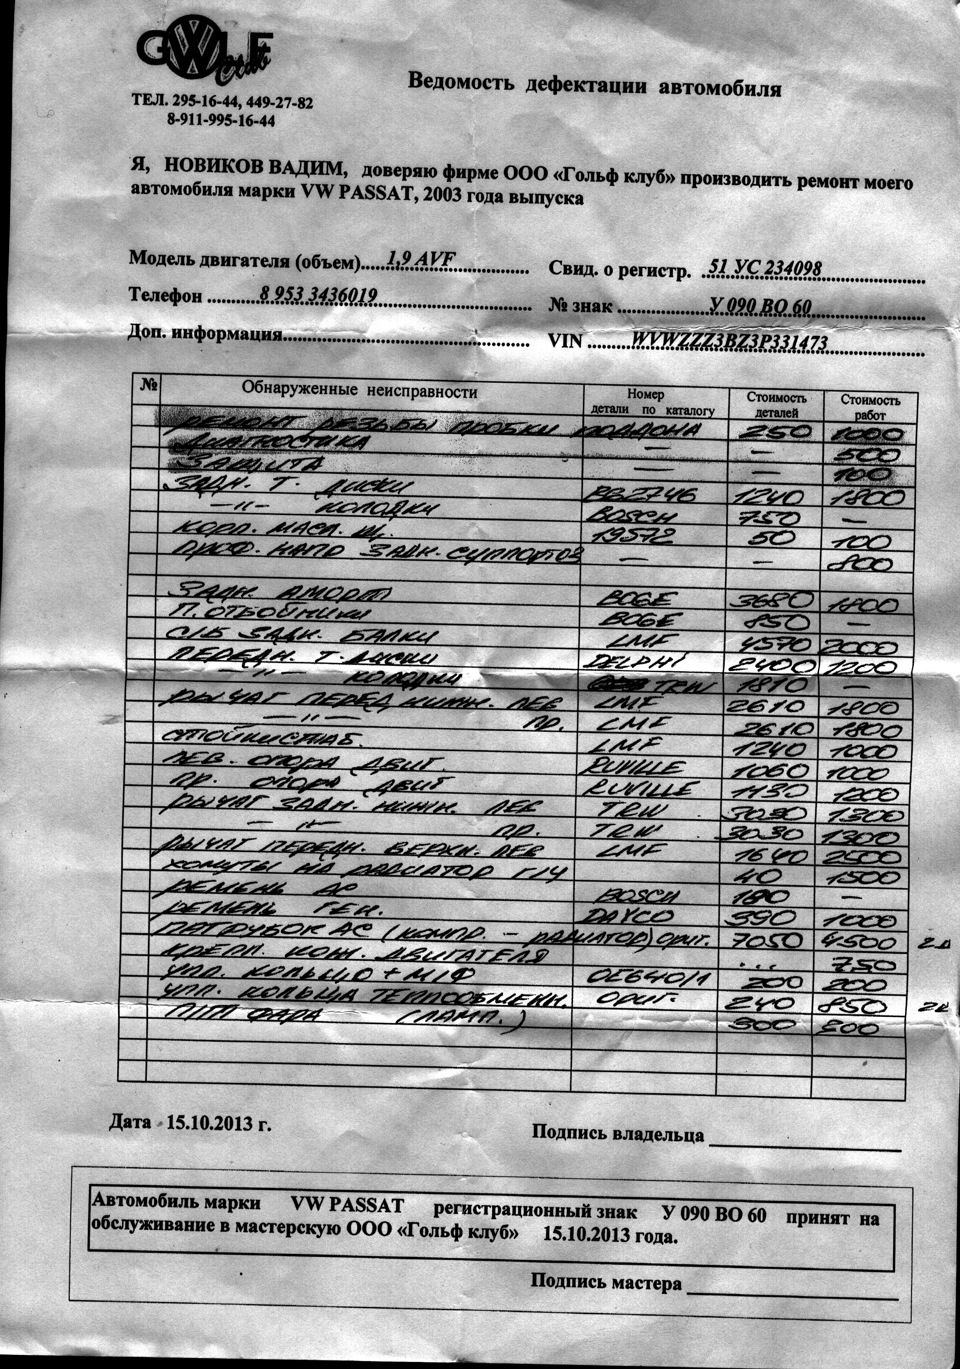 GOLF Club
Ведомость дефектации автомобиля
ТЕЛ. 295-16-44, 449-27-82
8-911-995-16-44
Я, НОВИКОВ ВАДИМ, доверяю фирме ООО «Гольф клуб» производить ремонт моего
автомобиля марки VW PASSAT, 2003 года выпуска
Модель двигателя (объем)....1,9 AVF.... Свид. о регистр. 51 УС 234098
Телефон ..........8 953 3436019.......... № знак ..........У 090 ВО 60..........
Доп. информация.......... VIN ......WVWZZZ3BZ3P331473......
№ Обнаруженные неисправности Номер детали по каталогу Стоимость деталей Стоимость работ
РЕМОНТ РЕЗЬБЫ ПРОБКИ ПОДДОНА 250 1000
ДИАГНОСТИКА — — 500
ЗАЩИТА — — 100
ЗАДН. Т. ДИСКИ 1240 1800
—〃— КОЛОДКИ BOSCH 750 —
КОРП. МАСЛ. Щ. 19572 50 100
ПРОФ. НАПР ЗАДН. СУППОРТОВ — — 800
ЗАДН. АМОРТ BOGE 3680 1800
П. ОТБОЙНИКИ BOGE 850 —
С/Б ЗАДН. БАЛКИ LMF 4570 2000
ПЕРЕДН. Т. ДИСКИ DELPHI 2400 1200
—〃— КОЛОДКИ TRW 1810 —
РЫЧАГ ПЕРЕД НИЖН. ЛЕВ LMF 2610 1800
—〃— ПР. LMF 2610 1800
СТОЙКИ СТАБ. LMF 1240 1000
ЛЕВ. ОПОРА ДВИГ. RUVILLE 1060 1000
ПР. ОПОРА ДВИГ RUVILLE 1130 1200
РЫЧАГ ЗАДН. НИЖН. ЛЕВ TRW 3030 1300
—〃— ПР. TRW 3030 1300
РЫЧАГ ПЕРЕДН. ВЕРХН. ЛЕВ LMF 1640 2500
ХОМУТЫ НА РАДИАТОР ГУЧ 40 1500
РЕМЕНЬ АС BOSCH 180 —
РЕМЕНЬ ГЕН. DAYCO 590 1000
ПАТРУБОК АС (КОМПР. – РАДИАТОР) ОРИГ. 7050 4500
КРЕПЛ. КОЖ. ДВИГАТЕЛЯ ... 750
УПЛ. КОЛЬЦО + М/Ф OE640/1 200 200
УПЛ. КОЛЬЦА ТЕПЛООБМЕНН. ОРИГ. 240 850
ПТФ ФАРА (ЛАМП.) 300 200
Дата 15.10.2013 г.
Подпись владельца
Автомобиль марки VW PASSAT регистрационный знак У 090 ВО 60 принят на
обслуживание в мастерскую ООО «Гольф клуб» 15.10.2013 года.
Подпись мастера